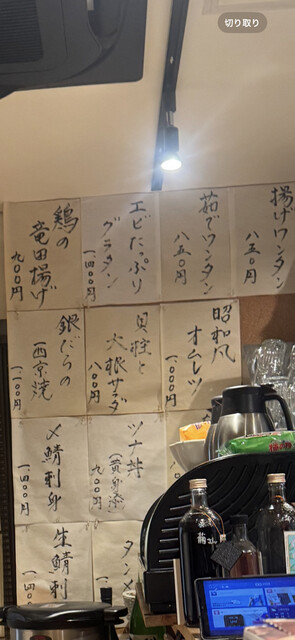 切り取り
揚げワンタン
八五〇円
茹でワンタン
八五〇円
エビたっぷり
グラタン
一、四〇〇円
鶏の
竜田揚げ
九〇〇円
昭和風
オムレツ
一、〇〇〇円
貝柱と
大根サラダ
八〇〇円
銀だらの
西京焼
一、二〇〇円
ツナ丼
(黄身添
九〇〇円
〆鯖刺身
一、四〇〇円
タンメ
生鯖刺